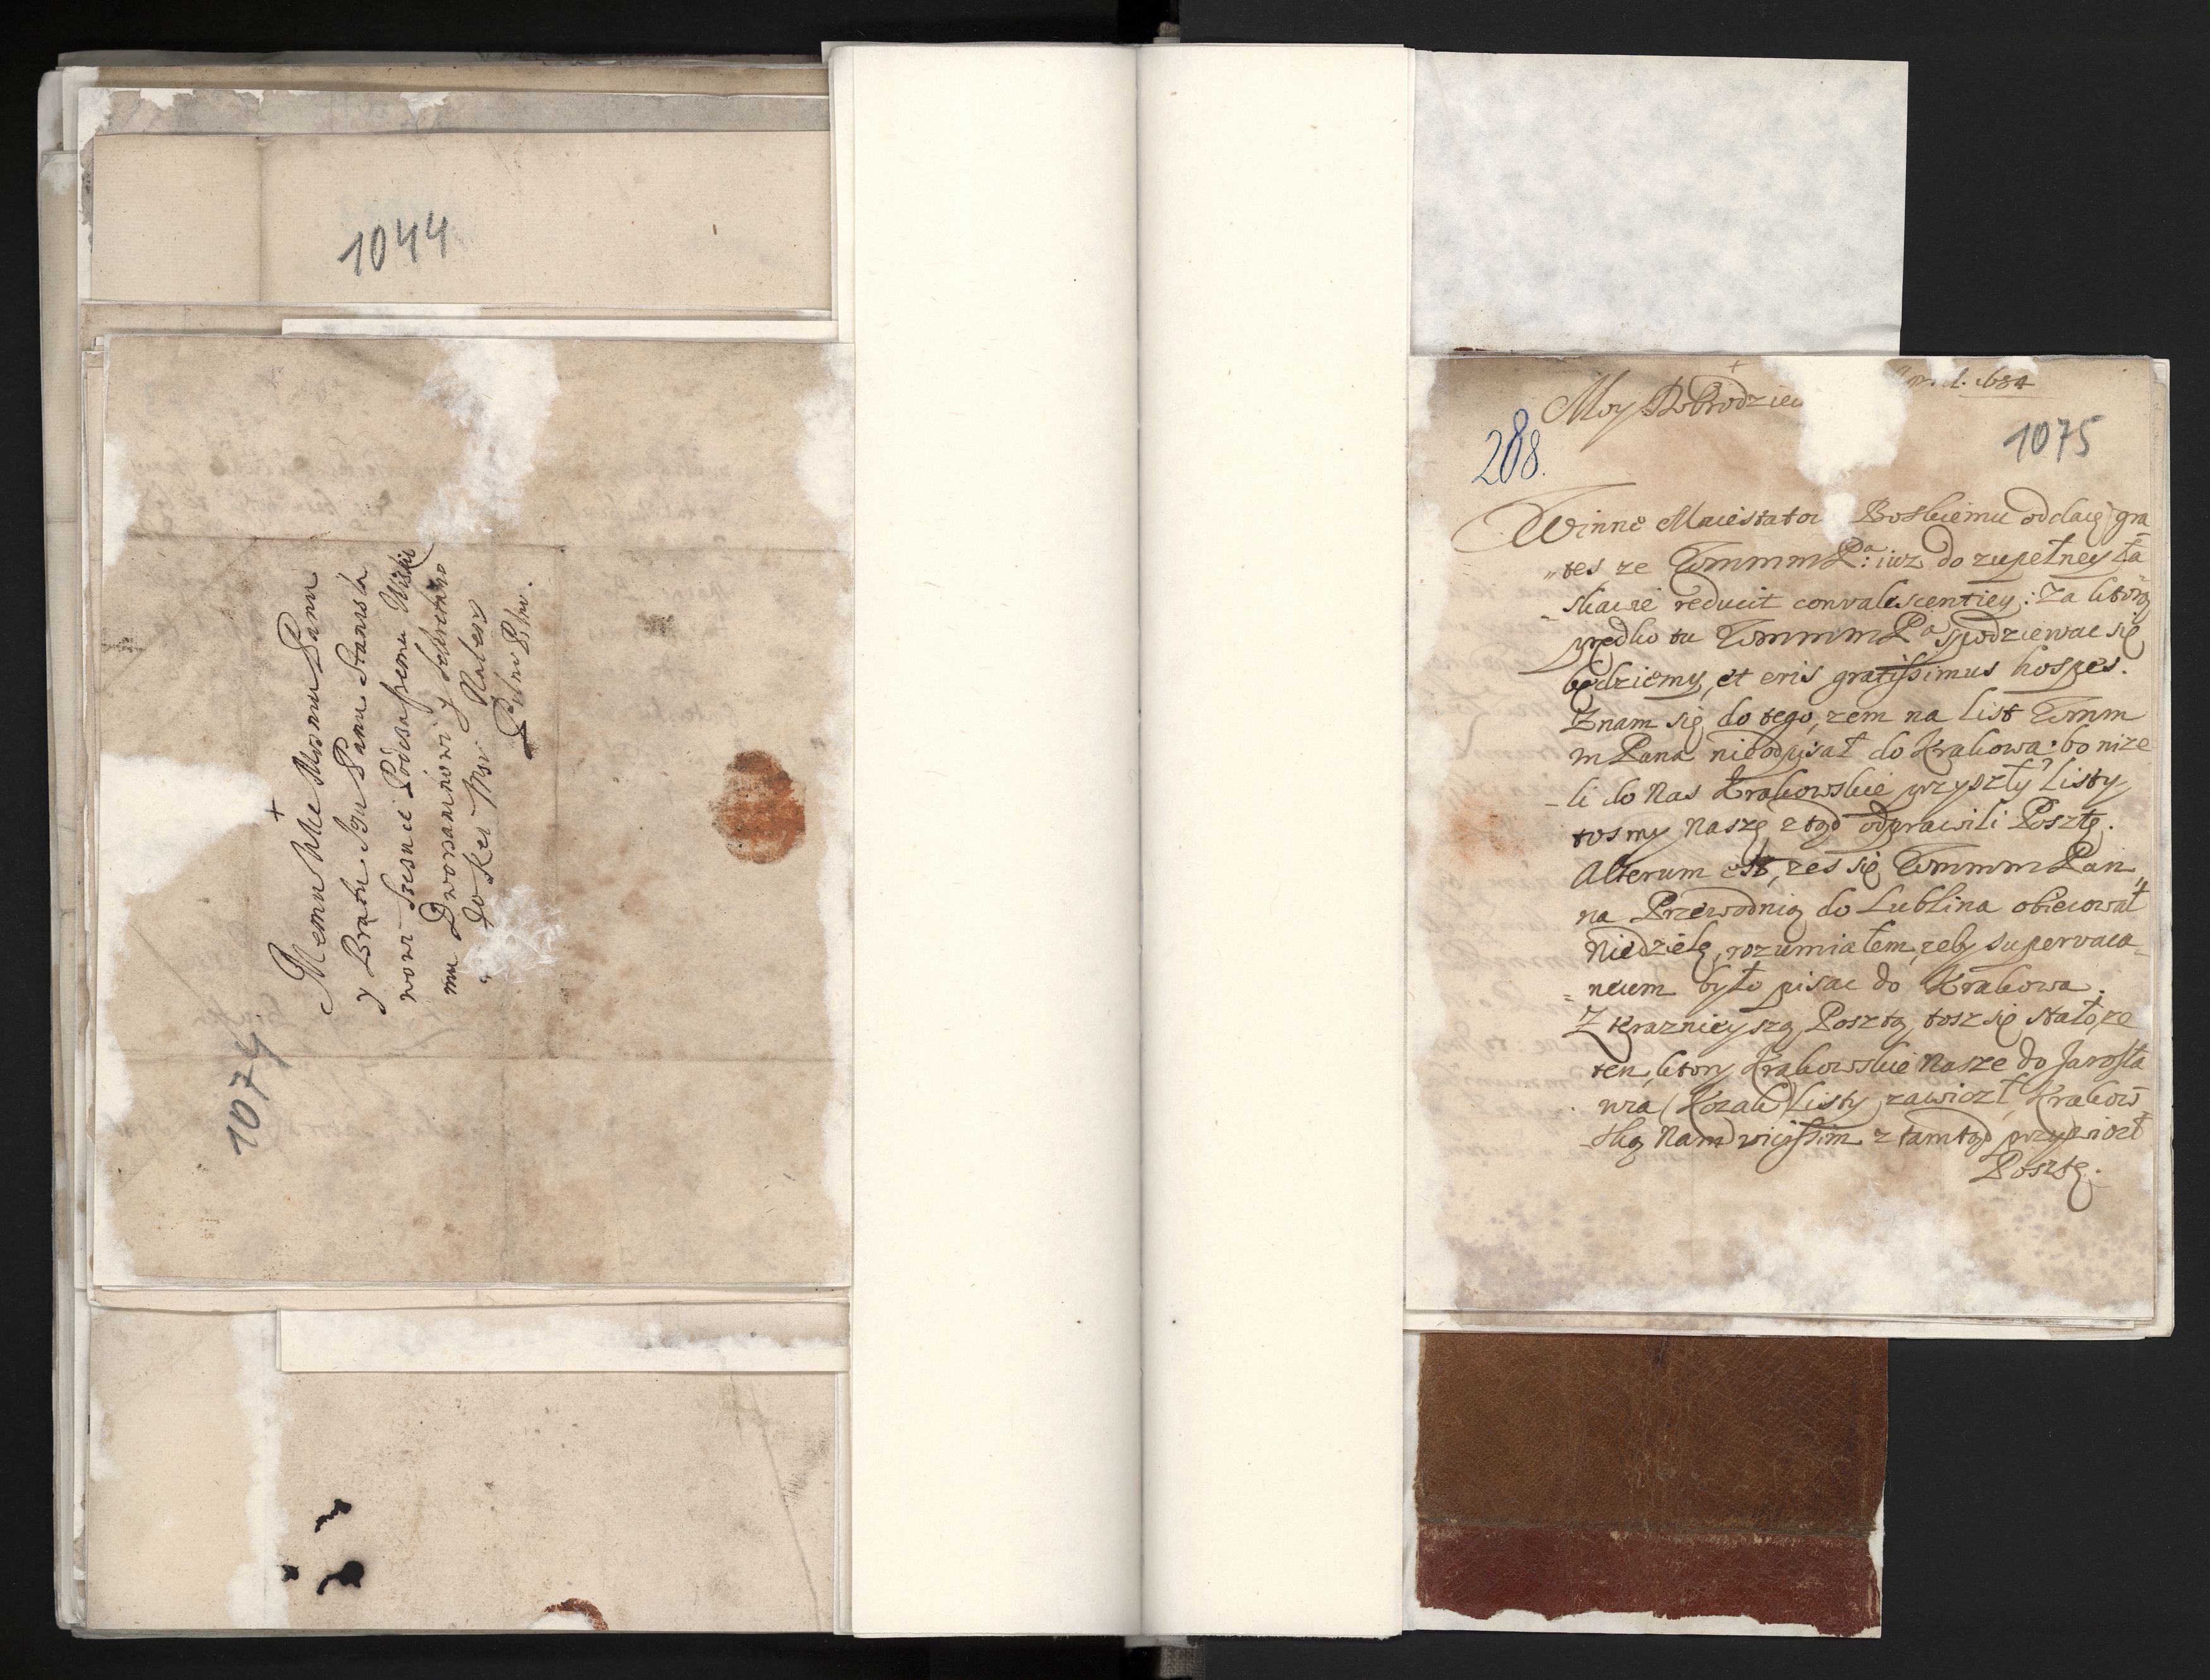 1044
1074
+
Memu Mce Msmu Panu
y Bratu Jgu Panu Stanisła
wowi Szczuce Podstaście
mu Dworzaninowi y Sekretarzo
do Kei Msci
Pilno Pilno.
1684
Moy Dobrodzieiu
288.
1075
Winne Maiestatoi Boskiemu oddaię gra
„tes ze WmmmPa: iuz do zupełney ła
-skawie reducit convalescentiey: Za ktorą
prędko tu WmmmPa spodziewac się
będziemy, et eris gratissimus hospes.
Znam się do tego, zem na list Wmm
mPana nieodpisał do Krakowa: bo nize
-li do Nas Krakowskie przyszły Listy,
tosmy Naszę ztąd odprawili Posztę.
Alterum est, zes się WmmmPan„
na Przewodnią do Lublina obiecował
Niedzielę, rozumiałem, zeby supervaca-
=neum było pisac do Krakowa.
Z terazniejszą Posztą, tosz się stało, ze
ten, ktory Krakowskie Nasze do Jarosła
wia (Kozak) Listy zawiozł, Krakow
-ską Nam vicissim z tamtąd przywiozł
Posztę.